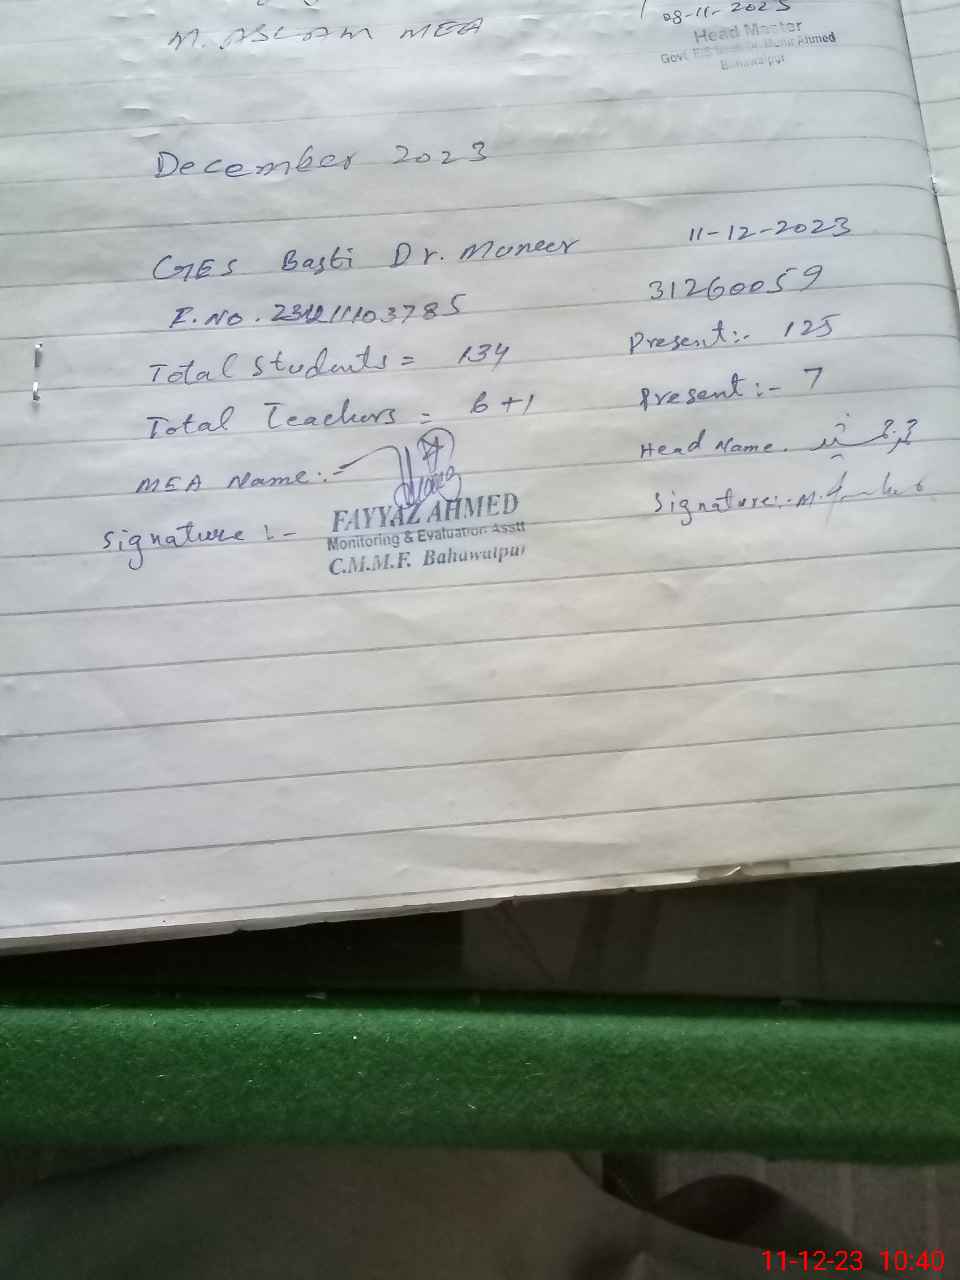 M. ASLAM MEA
08-11-2023
Head Master
Govt. Ahmed
Bahawalpur
December 2023
GES Basti Dr. Muneer 11-12-2023
31260059
Total Students = 134 Present:- 125
Total Teachers = 6+1 Present:- 7
MEA Name:- Head Name.
Signature:- Signature:-
FAYYAZ AHMED
Monitoring & Evaluation Asstt
C.M.M.F. Bahawalpur
11-12-23 10:40